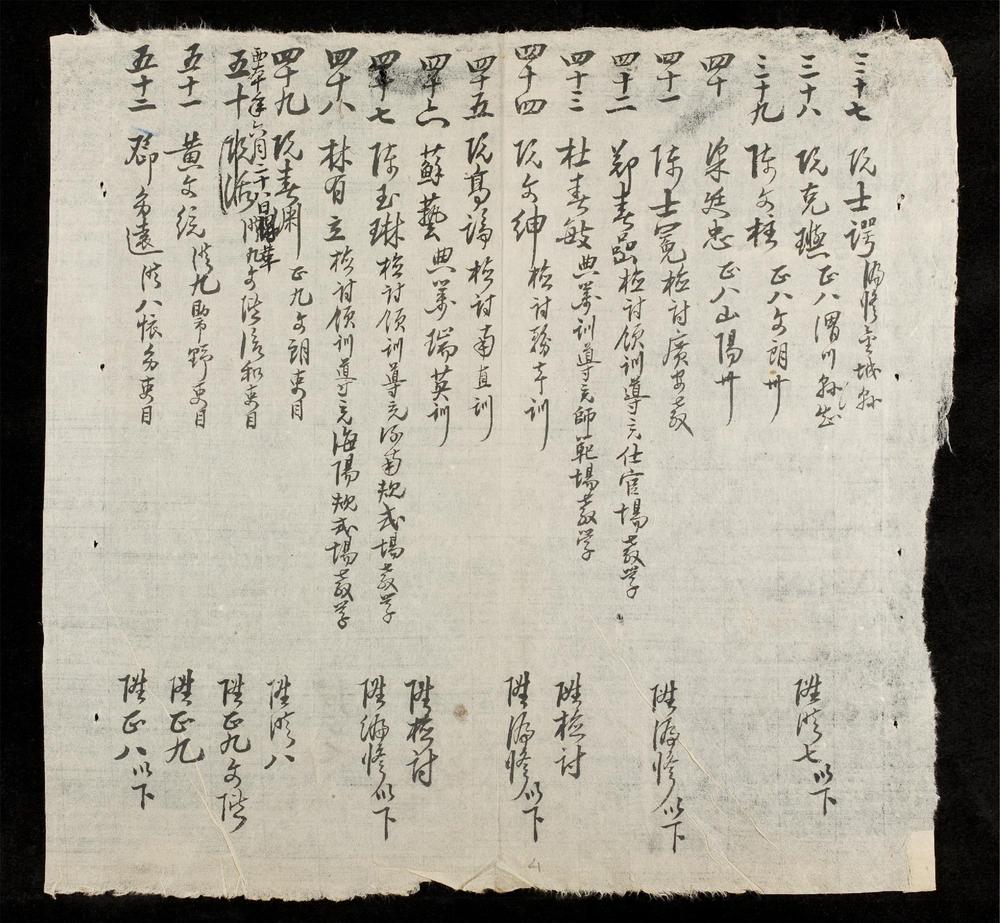 三十七 阮士諤 編修 金城縣
三十八 阮克 正八渭川縣
陞從七以下
三十九 陳文柱 正八文朗州
四十 梁廷忠 正八山陽州
四十一 陳士冕 檢討廣安教
陞編修以下
四十二 鄭春 檢討領訓導充仕官場教学
四十三 杜春敏 典簿訓導充師範場教学
陞檢討
四十四 阮文紳 檢討務本训
陞編修以下
四十五 阮嵩 檢討南直训
四十六 蘇藝 典簿瑞英训
陞檢討
四十七 陳玉琳 檢討領训導充河南規式場教学
陞編修以下
四十八 林有立 檢討領训導充海陽規式場教学
四十九 阮春渊 正九文朗吏目
陞從八
年六月二十八日
五十 從九文 吏目
陞正九文階
五十一 黄文統 從九 野吏目
陞正九
五十二 鄧多遠 從八懷 吏目
陞正八以下